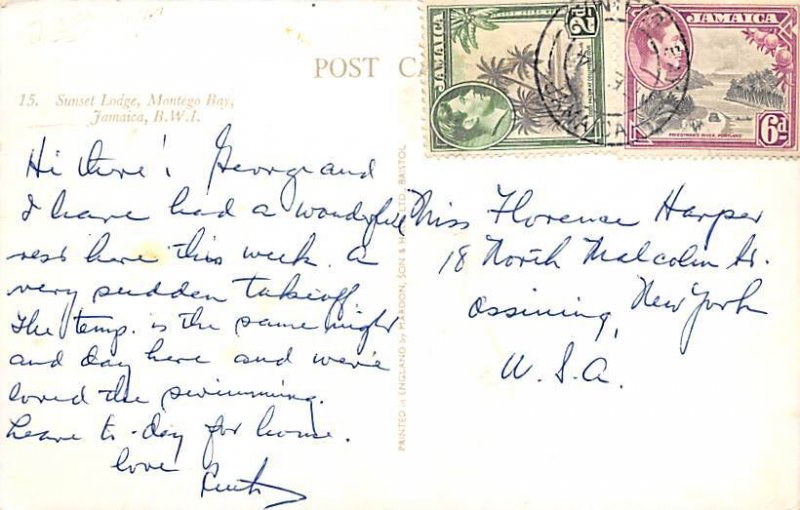 POST CA
15. Sunset Lodge, Montego Bay,
Jamaica, B.W.I.
Hi there! George and
I have had a wonderful
rest here this week. A
very sudden takeoff.
The temp. is the same night
and day here and we've
loved the swimming.
Leave to-day for home.
love Ruth
PRINTED in ENGLAND by MARDON, SON & H LTD., BRISTOL
JAMAICA
2½d
JAMAICA
6d
PRIESTMAN'S RIVER, PORTLAND
JAMAICA
Miss Florence Harper
18 North Malcolm St.
Ossining, New York
U.S.A.